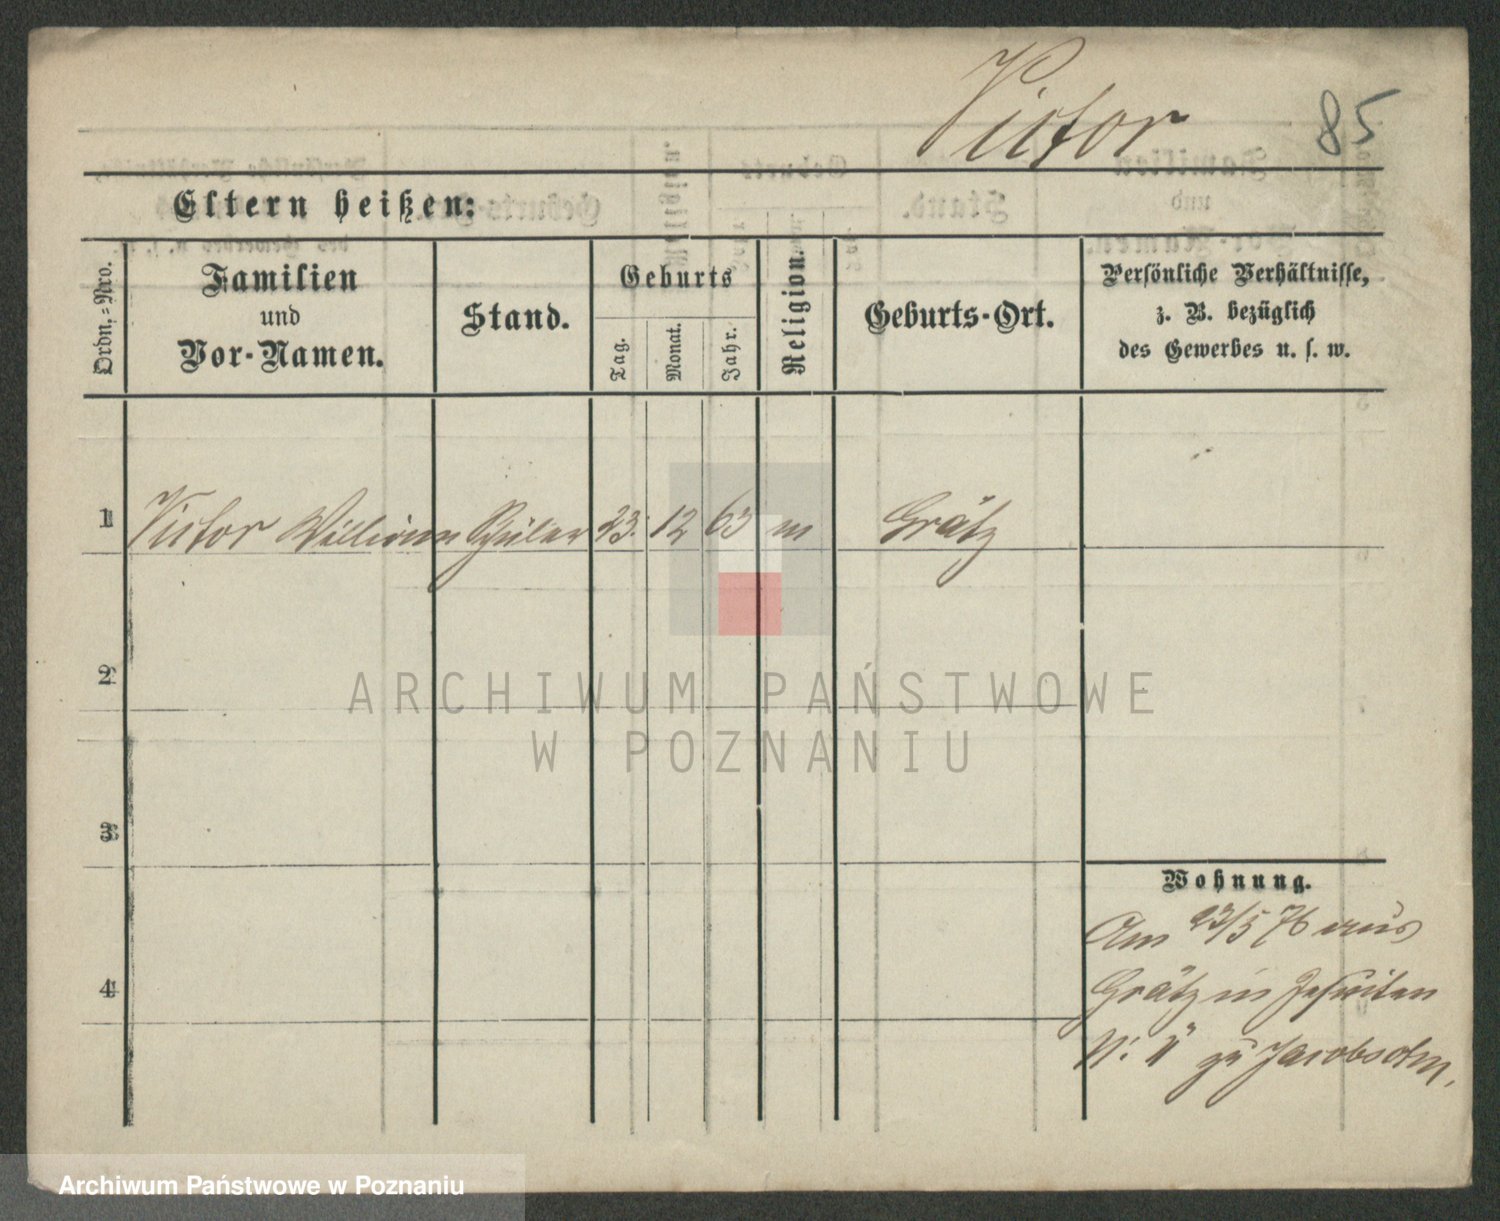 Victor 85
Eltern heißen:
Ordn.-Nro.
Familien
und
Vor-Namen.
Stand.
Geburts
Tag.
Monat.
Jahr.
Religion.
Geburts-Ort.
Persönliche Verhältnisse,
z. B. bezüglich
des Gewerbes u. s. w.
1 Victor William Schüler 23. 12 63 m Grätz
2
3
4
Wohnung.
Am 23/5 76 aus
Grätz in Jesuiten
N: zu Jacobsohn.
ARCHIWUM PAŃSTWOWE
W POZNANIU
Archiwum Państwowe w Poznaniu